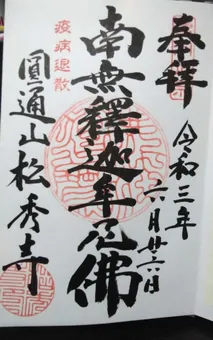 奉拜
令和三年
六月廿六日
南無釋迦牟尼佛
疫病退散
圓通山松秀寺